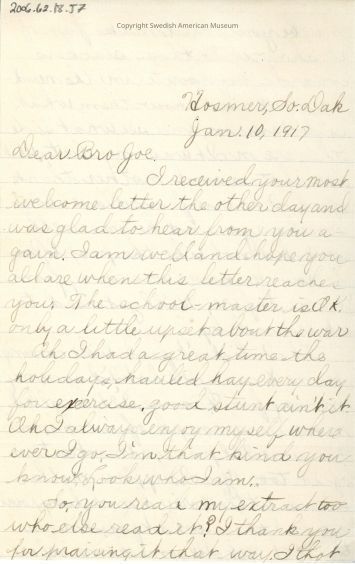 2006.62.18.57
Copyright Swedish American Museum
Hosmer, So. Dak
Jan. 10, 1917
Dear Bro Joe.
I received your most
welcome letter the other day and
was glad to hear from you a-
gain. I am well and hope you
all are when this letter reaches
you. The school-master is O.K.
only a little upset about the war
Oh I had a great time the
holidays, hauled hay every day
for exercise, good stunt ain't it
Oh I always enjoy myself where
ever I go, I'm that kind you
know. Look who I am.
So, you read my extract too
who else read it? I thank you
for praising it that way. I that